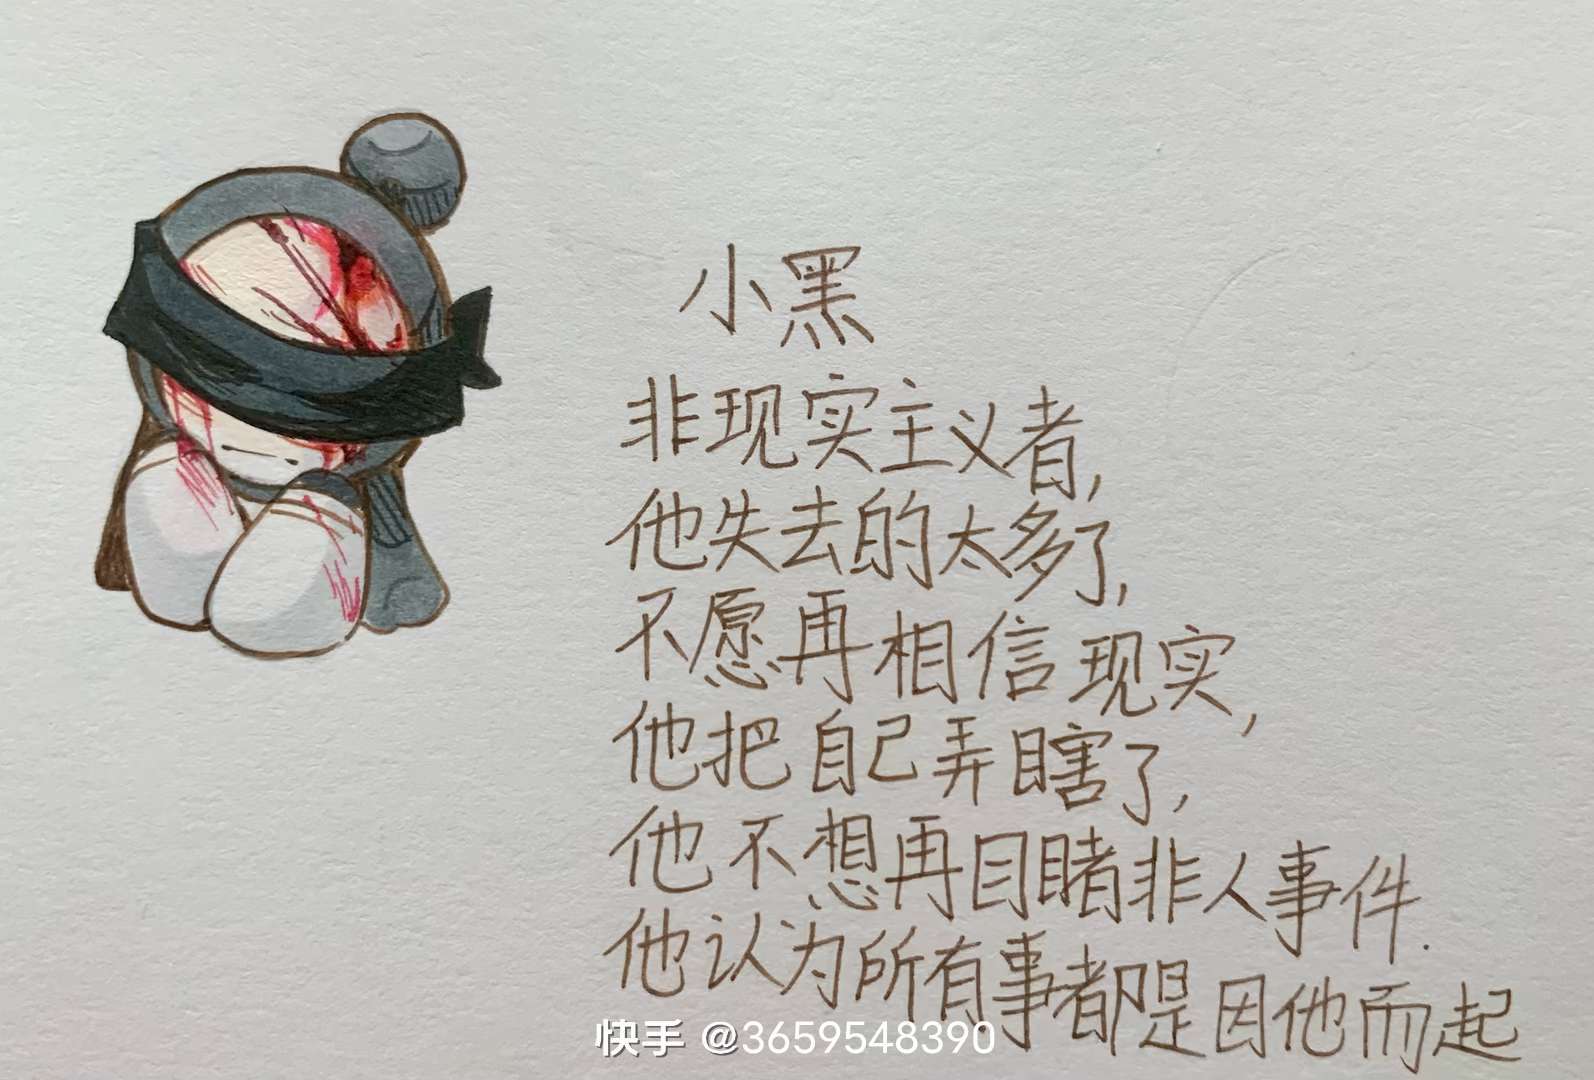 小黑
非现实主义者,
他失去的太多了,
不愿再相信现实,
他把自己弄瞎了,
他不想再目睹非人事件.
他认为所有事都是因他而起
快手 @3659548390